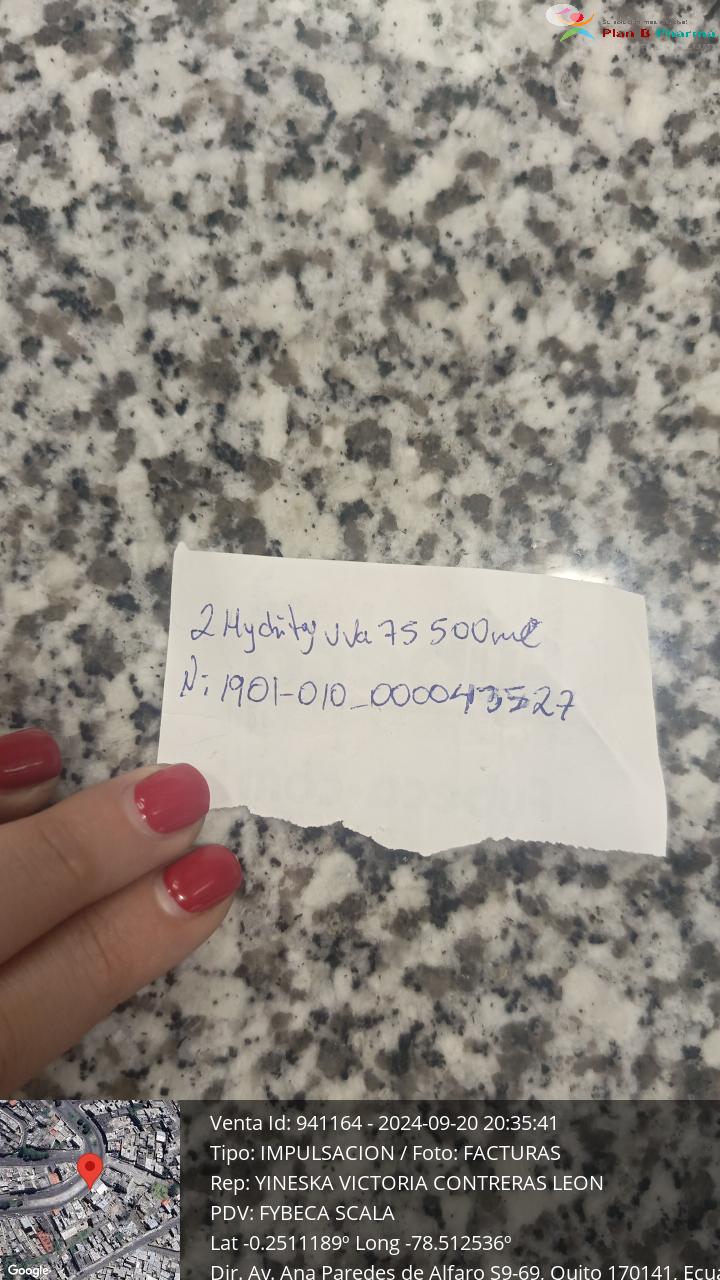 Plan B Pharma
2 Hydrity uva 75 500ml
N: 1901-010_000043527
Venta Id: 941164 - 2024-09-20 20:35:41
Tipo: IMPULSACION / Foto: FACTURAS
Rep: YINESKA VICTORIA CONTRERAS LEON
PDV: FYBECA SCALA
Lat -0.2511189º Long -78.512536º
Dir. Av. Ana Paredes de Alfaro S9-69, Quito 170141, Ecua
Google